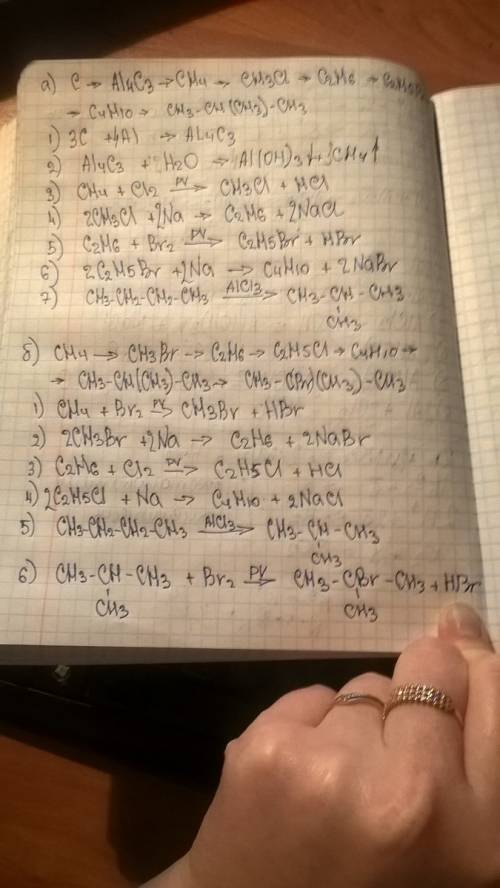 а) C → Al4C3 → CH4 → CH3Cl → C2H6 → C2H5Br
→ C4H10 → CH3-CH(CH3)-CH3
1) 3C + 4Al → Al4C3
2) Al4C3 + H2O → Al(OH)3↓ + 3CH4↑
3) CH4 + Cl2 →
CH3Cl + HCl
4) 2CH3Cl + 2Na → C2H6 + 2NaCl
5) C2H6 + Br2 →
C2H5Br + HBr
6) 2C2H5Br + 2Na → C4H10 + 2NaBr
7) CH3-CH2-CH2-CH3 AlCl3→ CH3-CH-CH3
CH3
б) CH4 → CH3Br → C2H6 → C2H5Cl → C4H10 →
→ CH3-CH(CH3)-CH3 → CH3-C(Br)(CH3)-CH3
1) CH4 + Br2 →
CH3Br + HBr
2) 2CH3Br + 2Na → C2H6 + 2NaBr
3) C2H6 + Cl2 →
C2H5Cl + HCl
4) 2C2H5Cl + Na → C4H10 + 2NaCl
5) CH3-CH2-CH2-CH3 AlCl3→ CH3-CH-CH3
CH3
6) CH3-CH-CH3 + Br2 → CH3-CBr-CH3 + HBr
CH3 CH3